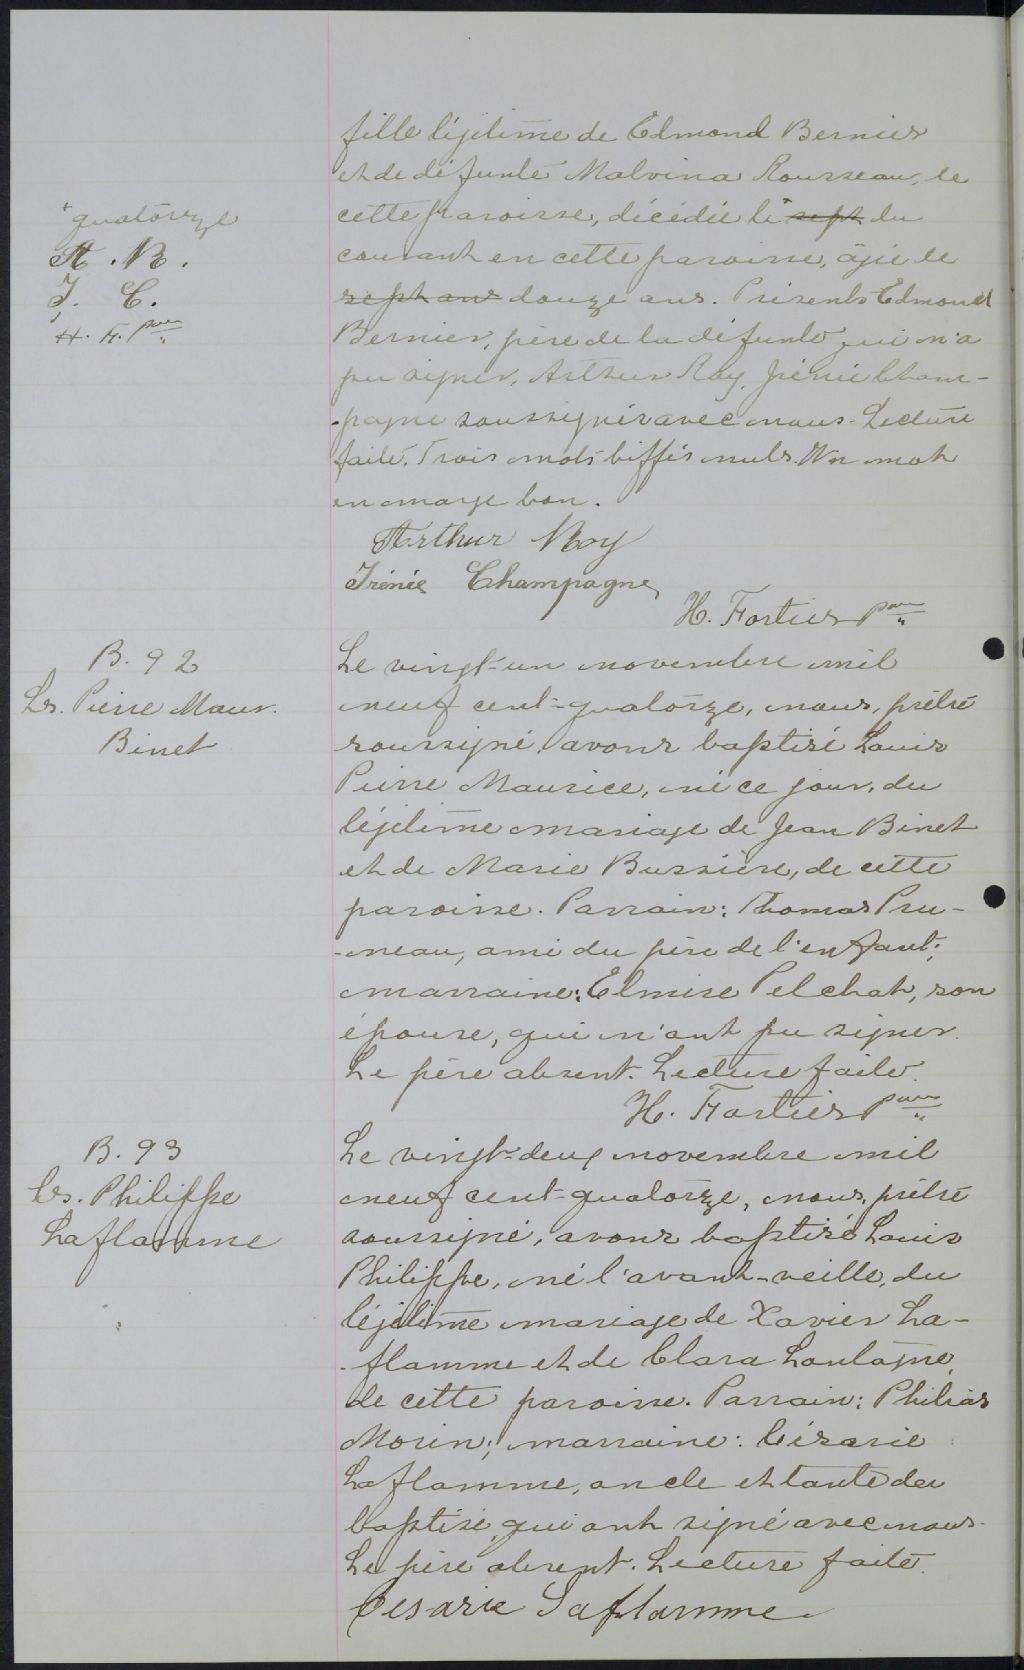 fille légitime de Edmond Bernier
et de défunte Malvina Rousseau, de
cette paroisse, décédée le + sept du
courant en cette paroisse, âgée de
sept ans douze ans. Présents Edmond
Bernier, père de la défunte qui n'a
pu signer, Arthur Roy, Irénée Cham-
-pagne soussignés avec nous. Lecture
faite. Trois mots biffés nuls. Un mot
en marge bon.
+ quatorze
A. R.
I. C.
H. F. Ptre
Arthur Roy
Irénée Champagne
H. Fortier Ptre
B. 92
Ls. Pierre Maur.
Binet
Le vingt-un novembre mil
neuf cent-quatorze, nous, prêtre
soussigné, avons baptisé Louis
Pierre Maurice, né ce jour, du
légitime mariage de Jean Binet
et de Marie Bussière, de cette
paroisse. Parrain: Thomas Pru-
-neau, ami du père de l'enfant;
marraine: Elmire Pelchat, son
épouse, qui n'ont pu signer.
Le père absent. Lecture faite.
H. Fortier Ptre
B. 93
Ls. Philippe
Laflamme
Le vingt-deux novembre mil
neuf cent-quatorze, nous, prêtre
soussigné, avons baptisé Louis
Philippe, né l'avant-veille, du
légitime mariage de Xavier La-
-flamme et de Clara Lontagne,
de cette paroisse. Parrain: Philias
Morin; marraine: Césarie
Laflamme, oncle et tante du
baptisé, qui ont signé avec nous.
Le père absent. Lecture faite.
Césarie Laflamme